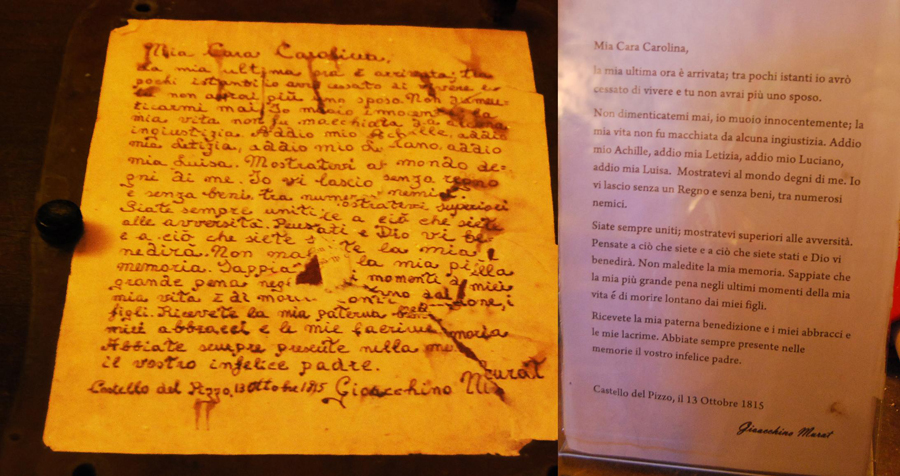 Mia Cara Carolina,
la mia ultima ora è arrivata; tra
pochi istanti io avrò cessato di vivere e
tu non avrai più uno sposo. Non dimen-
ticarmi mai. Io muoio innocente; la
mia vita non fu macchiata da alcuna
ingiustizia. Addio mio Achille, addio
mia Letizia, addio mio Luciano, addio
mia Luisa. Mostratevi al mondo de-
gni di me. Io vi lascio senza regno
e senza beni, tra numerosi nemici.
Siate sempre uniti, mostratevi superiori
alle avversità. Pensate a ciò che siete
e a ciò che siete stati e Dio vi be-
nedirà. Non maledite la mia
memoria. Sappiate la mia più
grande pena negli momenti della
mia vita è di morire lontano dai miei
figli. Ricevete la mia paterna benedizione, i
miei abbracci e le mie lacrime.
Abbiate sempre presente nella memoria
il vostro infelice padre.
Castello del Pizzo, 13 Ottobre 1815 Gioacchino Murat
Mia Cara Carolina,
la mia ultima ora è arrivata; tra pochi istanti io avrò
cessato di vivere e tu non avrai più uno sposo.
Non dimenticatemi mai, io muoio innocentemente; la
mia vita non fu macchiata da alcuna ingiustizia. Addio
mio Achille, addio mia Letizia, addio mio Luciano,
addio mia Luisa. Mostratevi al mondo degni di me. Io
vi lascio senza un Regno e senza beni, tra numerosi
nemici.
Siate sempre uniti; mostratevi superiori alle avversità.
Pensate a ciò che siete e a ciò che siete stati e Dio vi
benedirà. Non maledite la mia memoria. Sappiate che
la mia più grande pena negli ultimi momenti della mia
vita é di morire lontano dai miei figli.
Ricevete la mia paterna benedizione e i miei abbracci e
le mie lacrime. Abbiate sempre presente nelle
memorie il vostro infelice padre.
Castello del Pizzo, il 13 Ottobre 1815
Gioacchino Murat